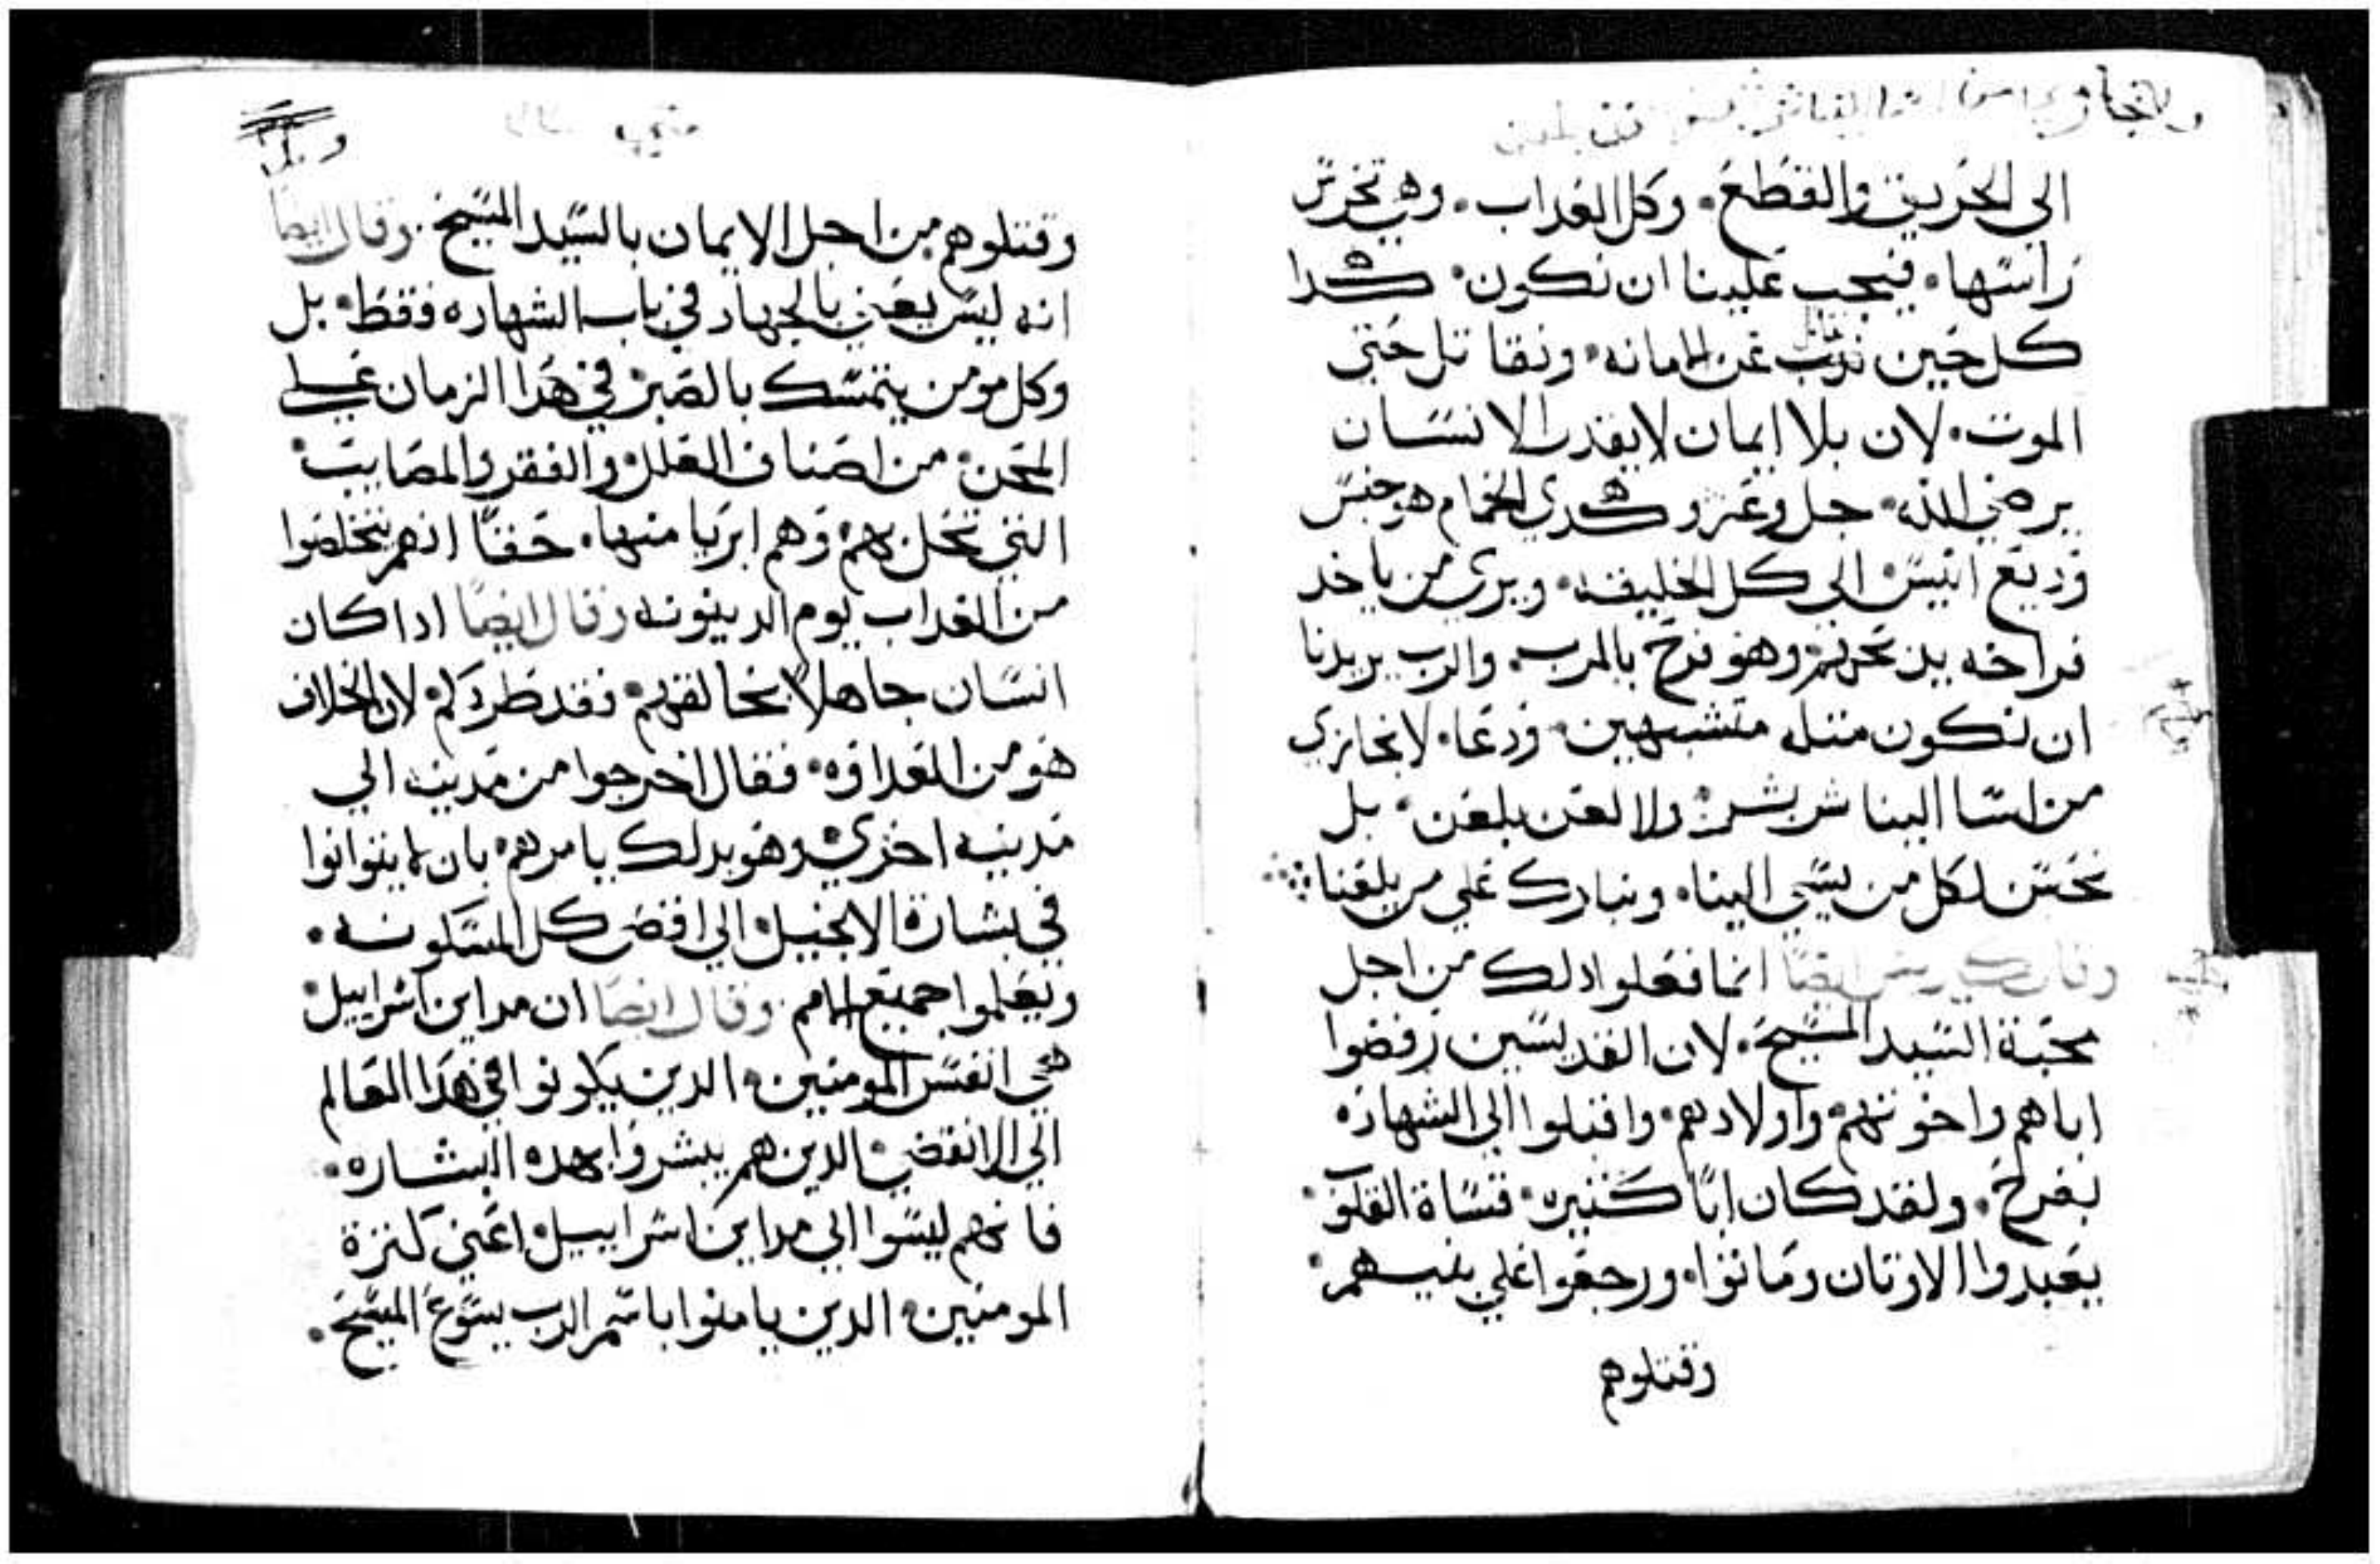 الي الحريق والقطع. وكل العداب. وهي تحرس
راسها. فيجب علينا ان نكون. هكدا
كل حين عن الامانه. ونقاتل حتى
الموت. لان بلا ايمان لا يقدر الانسان
يرضي الله. جل وعز وهكدي الحمام هو جنس
وديع انيس الي كل الخليقه. ويري من ياخد
فراخه وهو فرح بالمرب. والرب يريدنا
ان نكون متله متشبهين. ودعا. لا نجازي
من اسا الينا شر بشر. ولا لعن بلعن. بل
نحسن لكل من يسي الينا. ونبارك علي من يلعنا
وقال ايضا انما فعلوا دلك من اجل
محبة السيد المسيح. لان القديسين رفضوا
اباهم واخوتهم. واولادهم. واقبلوا الي الشهاده
بفرح. ولقد كان ابا كتير. قساة القلوب.
يعبدوا الاوتان وماتوا. ورجعوا علي بنيهم.
وقتلوهم
وقتلوهم من اجل الايمان بالسيد المسيح. وقال ايضا
انه ليس يعني بالجهاد في باب الشهاده فقط. بل
وكل مومن يتمسك بالصبر في هدا الزمان علي
المحن. من اصناف العلل. والفقر والمصايب.
التي تحل بهم. وهم ابريا منها. حقا انهم يتخلصوا
من العداب يوم الدينونه وقال ايضا ادا كان
انسان جاهلا يخالفهم. فقد لان الخلاف
هو من العداوه. فقال اخرجوا من مدينه الي
مدينه اخري. وهو بدلك يامرهم. بان لا يتوانوا
في بشارة الانجيل. الي اقصى كل المسكونه.
ويعلموا جميع الامم. وقال ايضا ان مداين اسراييل.
هي انفس المومنين. الدين يكونوا في هدا العالم
الي الانقضي. الدين هم يبشروا بهده البشاره.
فانهم ليسوا الي مداين اسراييل. اعني كترة
المومنين. الدين يامنوا باسم الرب يسوع المسيح.